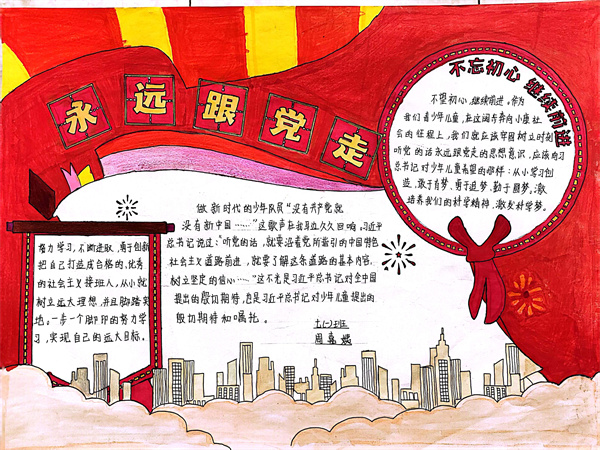 永远跟党走
不忘初心 继续前进
不望初心,继续前进。作为
我们青少年儿童,在这阔步奔向小康社
会的征程上,我们就应该牢固树立时刻
听党的话永远跟党走的思想意识,应该向习
总书记对少年儿童希望的那样:从小学习创
造,敢于有梦,勇于追梦,勤于圆梦,激
培养我们的科学精神,激发科学梦。
做新时代的少年队员“没有共产党就
没有新中国……”这歌声在我耳边久久回响。习近平
总书记说过:“听党的话,就要沿着党所指引的中国特色
社会主义道路前进,就要了解这条道路的基本内容,
树立坚定的信心……”这不光是习近平总书记对全中国
提出的殷切期待,也是习近平总书记对少年儿童提出的
殷切期待和嘱托。
七(一)班
周嘉
奋力学习,不断进取,勇于创新
把自己打造成合格的,优秀
的社会主义接班人,从小就
树立远大理想,并且脚踏实
地。一步一个脚印的努力学
习,实现自己的远大目标。